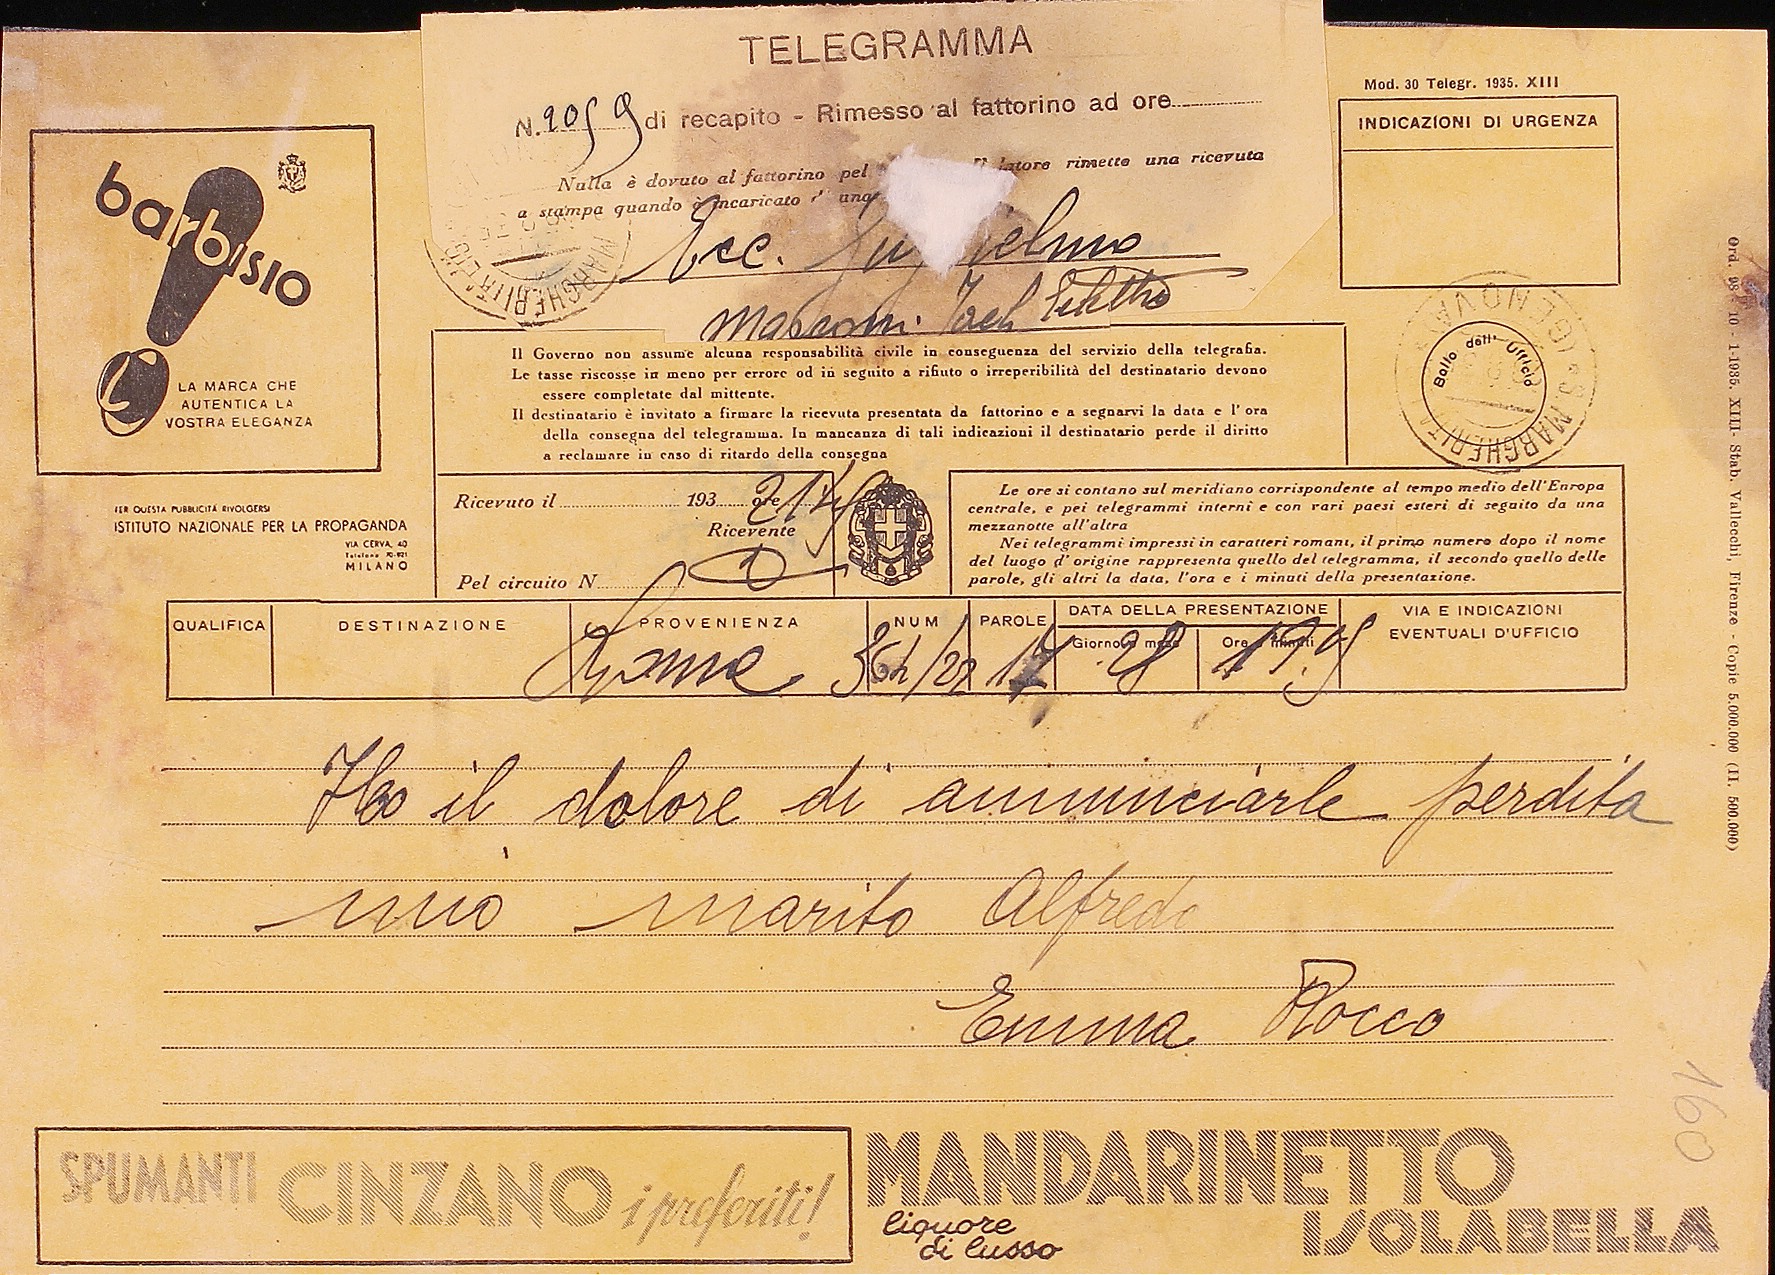 TELEGRAMMA
N. 2059 di recapito - Rimesso al fattorino ad ore
Nulla è dovuto al fattorino pel Il latore rimette una ricevuta
a stampa quando è incaricato
Ecc. Guglielmo
Marconi Yacht Elettra
Mod. 30 Telegr. 1935. XIII
INDICAZIONI DI URGENZA
barbisio
LA MARCA CHE
AUTENTICA LA
VOSTRA ELEGANZA
Il Governo non assume alcuna responsabilità civile in conseguenza del servizio della telegrafia.
Le tasse riscosse in meno per errore od in seguito a rifiuto o irreperibilità del destinatario devono
essere completate dal mittente.
Il destinatario è invitato a firmare la ricevuta presentata da fattorino e a segnarvi la data e l'ora
della consegna del telegramma. In mancanza di tali indicazioni il destinatario perde il diritto
a reclamare in caso di ritardo della consegna
S. MARGHERITA
(GENOVA)
Bollo dell'Ufficio
S. MARGHERITA
PER QUESTA PUBBLICITÀ RIVOLGERSI
ISTITUTO NAZIONALE PER LA PROPAGANDA
VIA CERVA, 40
MILANO
Ricevuto il 193 ore
Ricevente
Pel circuito N.
Le ore si contano sul meridiano corrispondente al tempo medio dell'Europa
centrale, e pei telegrammi interni e con vari paesi esteri di seguito da una
mezzanotte all'altra
Nei telegrammi impressi in caratteri romani, il primo numero dopo il nome
del luogo d'origine rappresenta quello del telegramma, il secondo quello delle
parole, gli altri la data, l'ora e i minuti della presentazione.
QUALIFICA DESTINAZIONE PROVENIENZA NUM PAROLE DATA DELLA PRESENTAZIONE VIA E INDICAZIONI
EVENTUALI D'UFFICIO
Giorno e mese Ore e minuti
Roma 17 28
Ho il dolore di annunciarle perdita
mio marito Alfredo
Emma Rocco
160
Ord. 98 - 10 - 1-1935. XIII - Stab. Vallecchi, Firenze - Copie 5.000.000 (II. 500.000)
SPUMANTI CINZANO i preferiti!
MANDARINETTO
liquore
di lusso
ISOLABELLA